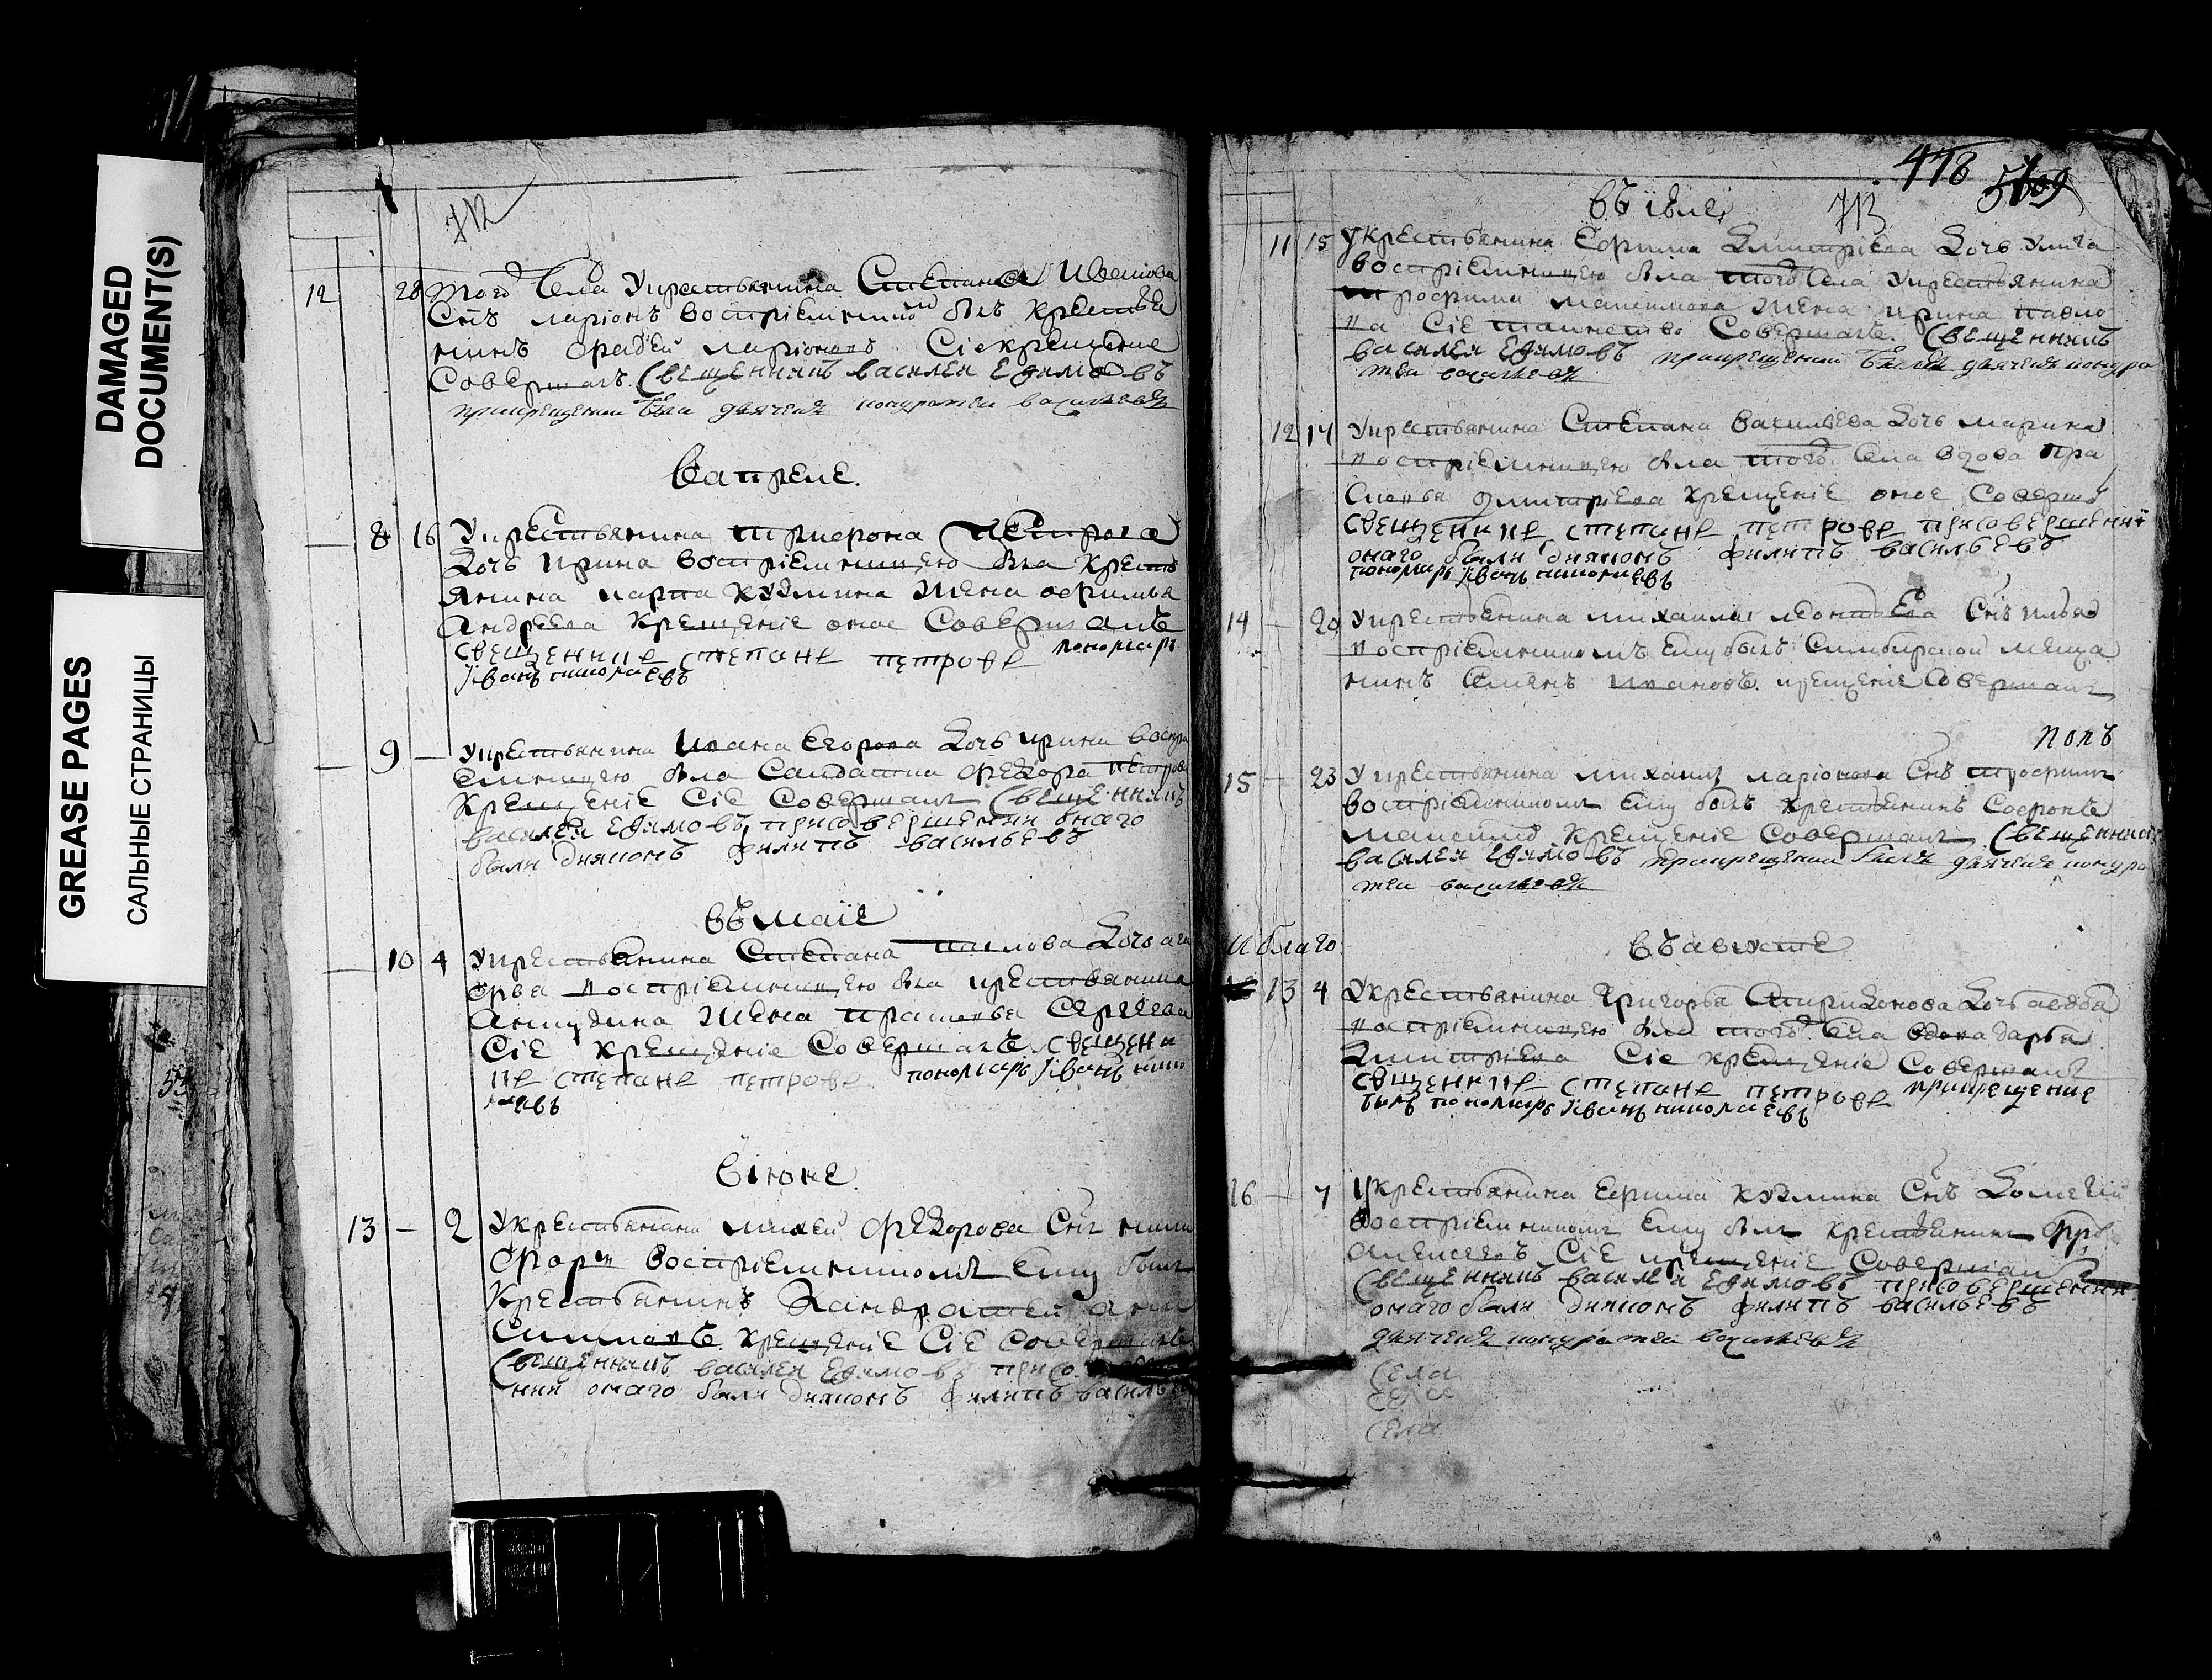 DAMAGED
DOCUMENT(S)
GREASE PAGES
САЛЬНЫЕ СТРАНИЦЫ
712
12 28 того села У крестьянина Степана
Снъ ларіонъ воспріемникомъ былъ крестья
нинъ фадей ларіоновъ Сіе крещеніе
Совершалъ Священникъ василей Ефимовъ
при крещении были дьячекъ кондратеи васильевъ
В апреле
8 16 У крестьянина трифона петрова
Дочь ирина воспріемницею была крест
янина карпа кузмина жена
андреева крещеніе оное Совершалъ
священникъ степанъ петровъ пономарь
іванъ николаевъ
9 — У крестьянина ивана егорова Дочь ирина воспри
емницею была Салдатка федора петрова
крещеніе Сіе Совершалъ Священникъ
василеи Ефимовъ присовершении онаго
были дияконъ филипъ васильевъ
въ маіе
10 4 У крестьянина Степана Дочь ага
фья воспріемницею была крестьянина
жена прасковья Сергеева
Сіе крещеніе Совершалъ священи
къ степанъ петровъ пономарь іванъ нико
лаевъ
В іюне
13 — 2 У крестьянина михей федорова Снъ ники
форъ воспріемникомъ ему былъ
крестьянинъ Кандратей
крещеніе Сіе Совершалъ
Священникъ василеи Ефимовъ присо
нии онаго были дияконъ филипъ василь
418 5109
въ іюле 713
11 15 У крестьянина Ефима Дмитріева Дочь улита
воспріемницею была того села У крестьянина
трофима максимова жена ирина павло
ва Сіе таинство Совершалъ Священникъ
василеи Ефимовъ при крещении были дьячекъ кондра
теи васильевъ
12 17 У крестьянина Степана васильева Дочь марина
воспріемницею была того села вдова пра
сковья дмитріева крещеніе оное Соверш
священникъ степанъ петровъ присовершениі
онаго были дияконъ филипъ васильевъ
пономарь іванъ николаевъ
14 — 20 У крестьянина михаила леонтьева Снъ илья
воспріемникомъ ему былъ Симбирской меща
нинъ Семенъ ивановъ крещеніе Совершалъ
попъ
15 — 23 У крестьянина михаила ларіонова Снъ трофимъ
воспріемникомъ ему былъ крестьянинъ Софронъ
крещеніе Совершалъ Священникъ
василеи Ефимовъ при крещении были дьячекъ кондра
теи васильевъ
И благо
въ августе
13 4 У крестьянина Григорья Спиридонова Дочь авдотья
воспріемницею была того села вдова дарья
Дмитріева Сіе крещеніе Совершалъ
священникъ степанъ петровъ при крещение
былъ пономарь іванъ николаевъ
16 — 7 У крестьянина Ефима кузмина Снъ
воспріемникомъ ему былъ крестьянинъ
алексеевъ Сіе крещеніе Совершалъ
Священникъ василеи Ефимовъ присовершении
онаго были дияконъ филипъ васильевъ
дьячекъ кондратеи васильевъ
Села
Села
Села